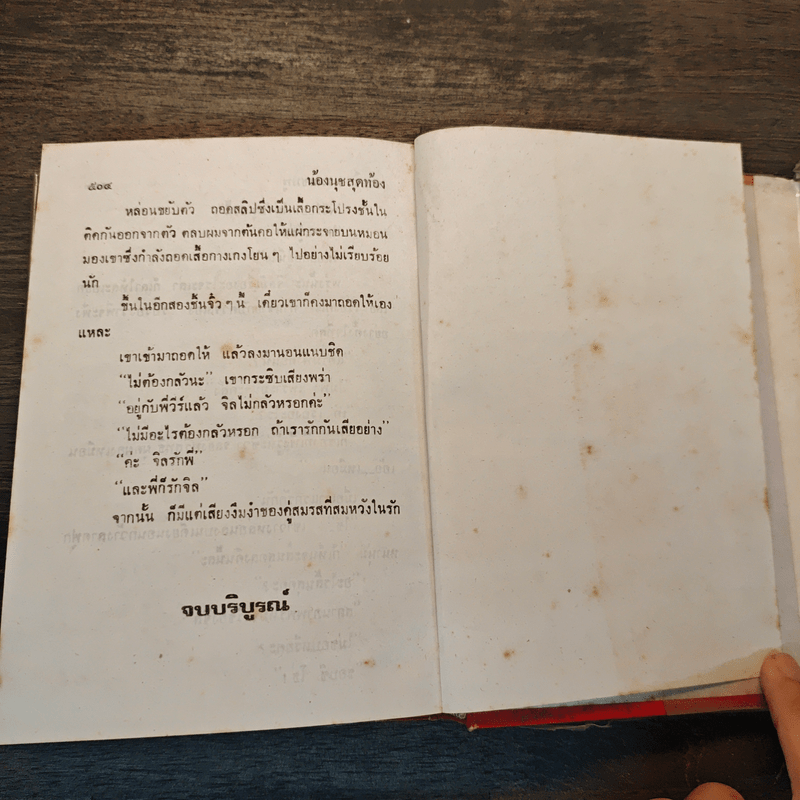 ๕๐๔ น้องนุชสุดท้อง
หล่อนขยับตัว ถอดสลิปซึ่งเป็นเสื้อกระโปรงชั้นใน
ติดกันออกจากตัว ตลบผมจากต้นคอให้แผ่กระจายบนหมอน
มองเขาซึ่งกำลังถอดเสื้อกางเกงโยน ๆ ไปอย่างไม่เรียบร้อย
นัก
ชิ้นในอีกสองชิ้นจิ๋ว ๆ นี้ เดี๋ยวเขาก็คงมาถอดให้เอง
แหละ
เขาเข้ามาถอดให้ แล้วลงมานอนแนบชิด
“ไม่ต้องกลัวนะ” เขากระซิบเสียงพร่า
“อยู่กับพี่วีร์แล้ว จิลไม่กลัวหรอกค่ะ”
“ไม่มีอะไรต้องกลัวหรอก ถ้าเรารักกันเสียอย่าง”
“ค่ะ จิลรักพี่”
“และพี่ก็รักจิล”
จากนั้น ก็มีแต่เสียงงึมงำของคู่สมรสที่สมหวังในรัก
จบบริบูรณ์